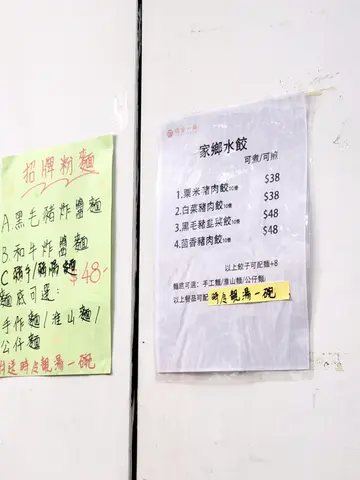 招牌粉麵
A.黑毛豬炸醬麵
B.和牛炸醬麵
$48-
麵底可選:
手作麵/淮山麵/
公仔麵
送時及靚湯一碗
家鄉水餃
可煮/可煎
1.粟米豬肉餃10隻 $38
2.白菜豬肉餃10隻 $38
3.黑毛豬韮菜餃10隻 $48
4.茴香豬肉餃10隻 $48
以上餃子可配麵+8
麵底可選:手工麵/淮山麵/公仔麵/
以上餐品可配 時及靚湯一碗